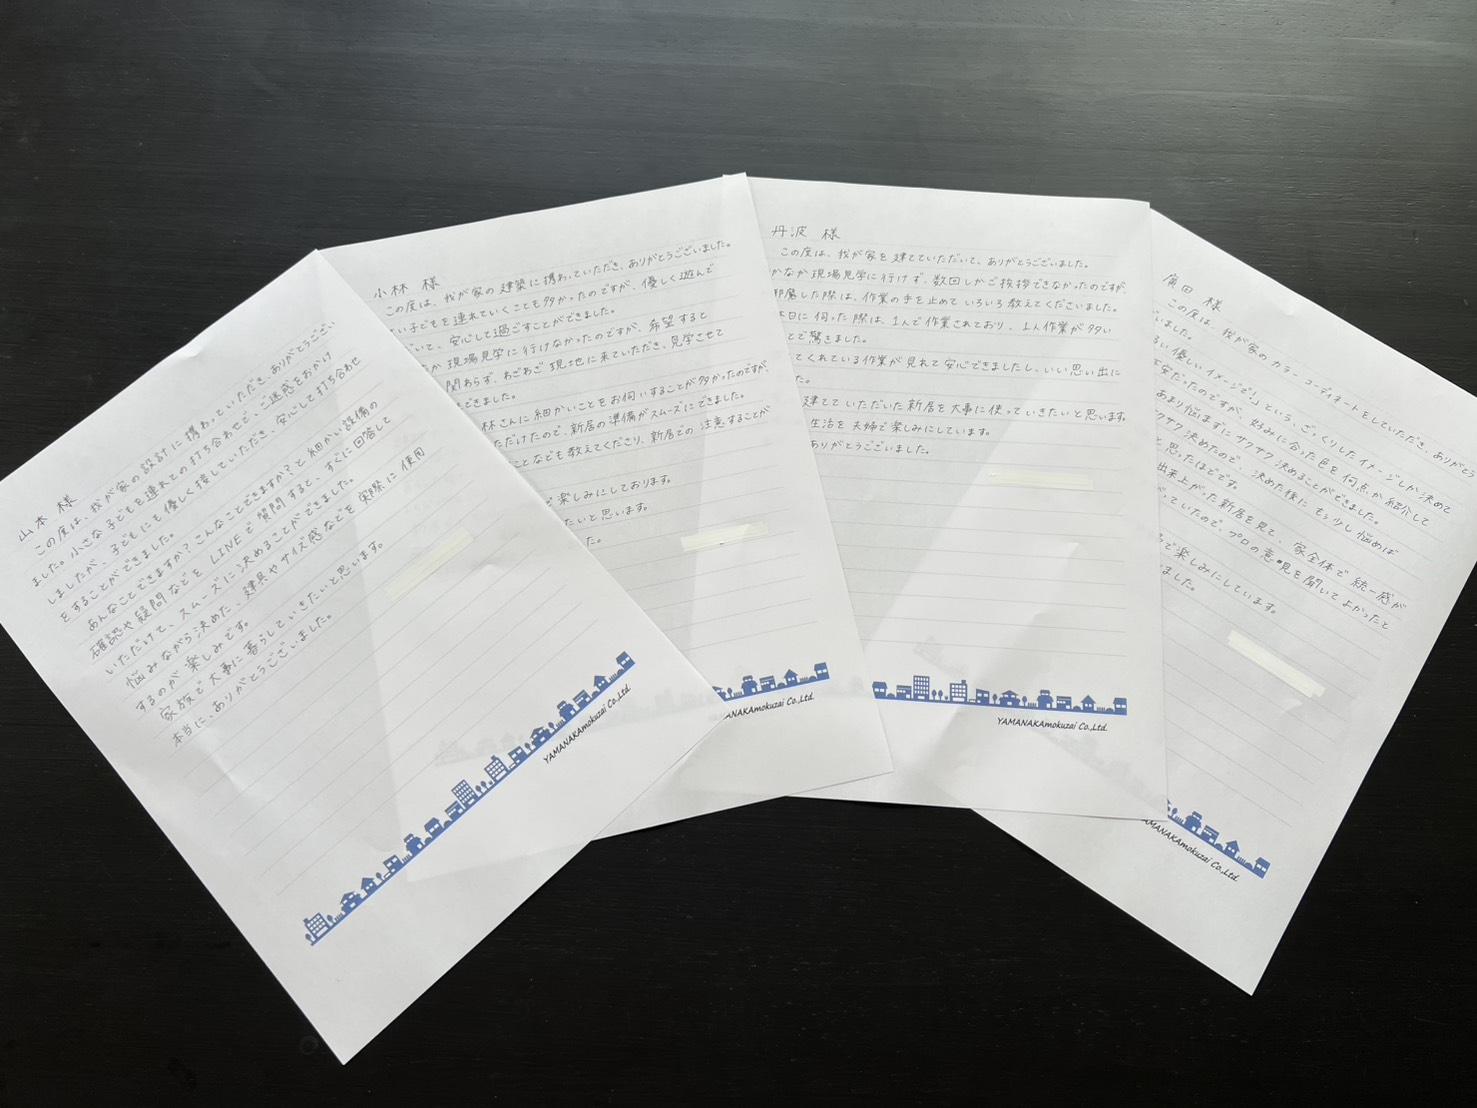 山本 様
この度は、我が家の設計に携わっていただき、ありがとうござい
ました。小さな子どもを連れての打ち合わせで、ご迷惑をおかけ
しましたが、子どもにも優しく接していただき、安心して打ち合わせ
をすることができました。
あんなことできますか?こんなことできますか?と細かい設備の
確認や疑問などをLINEで質問すると、すぐに回答して
いただけて、スムーズに決めることができました。
悩みながら決めた、建具やサイズ感などを実際に使用
するのが楽しみです。
家族で大事に暮らしていきたいと思います。
本当に、ありがとうございました。
YAMANAKAmokuzai Co.,Ltd.
小林 様
この度は、我が家の建築に携わっていただき、ありがとうございました。
い子どもを連れていくことも多かったのですが、優しく遊んで
いて、安心して過ごすことができました。
か現場見学に行けなかったのですが、希望すると
関わらず、わざわざ現地に来ていただき、見学させて
できました。
林さんに細かいことをお伺いすることが多かったのですが、
ただけたので、新居の準備がスムーズにできました。
ことなども教えてくださり、新居での注意することが
で楽しみにしております。
たいと思います。
た。
YAMANAKAmokuzai Co.,Ltd.
丹波 様
この度は、我が家を建てていただいて、ありがとうございました。
かなか現場見学に行けず、数回しかご挨拶できなかったのですが、
邪魔した際は、作業の手を止めていろいろ教えてくださいました。
本日に伺った際は、1人で作業されており、1人作業が多い
とで驚きました。
てくれている作業が見れて安心できましたし、いい思い出に
た。
建てていただいた新居を大事に使っていきたいと思います。
生活を夫婦で楽しみにしています。
ありがとうございました。
YAMANAKAmokuzai Co.,Ltd.
廣田 様
この度は、我が家のカラーコーディネートをしていただき、ありがとう
いました。
るい優しいイメージで!」という、ざっくりしたイメージしか決めて
不安だったのですが、好みに合った色を何点か紹介して
あまり悩まずにサクサク決めることができました。
クサク決めたので、決めた後にもう少し悩めば
と思ったほどです。
出来上がった新居を見て、家全体で統一感が
っていたので、プロの意見を聞いてよかったと
で楽しみにしています。
ました。
YAMANAKAmokuzai Co.,Ltd.